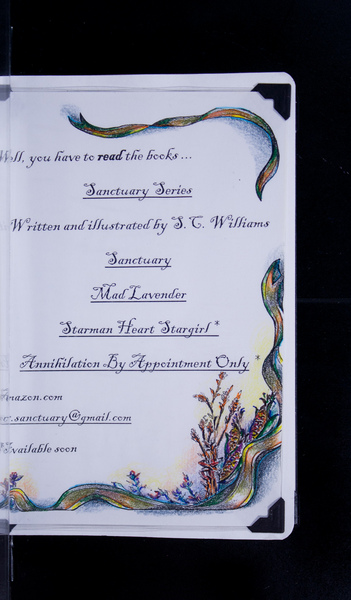 Well, you have to read the books ...
Sanctuary Series
Written and illustrated by S. C. Williams
Sanctuary
Mad Lavender
Starman Heart Stargirl *
Annihilation By Appointment Only *
Amazon.com
.sanctuary@gmail.com
*Available soon